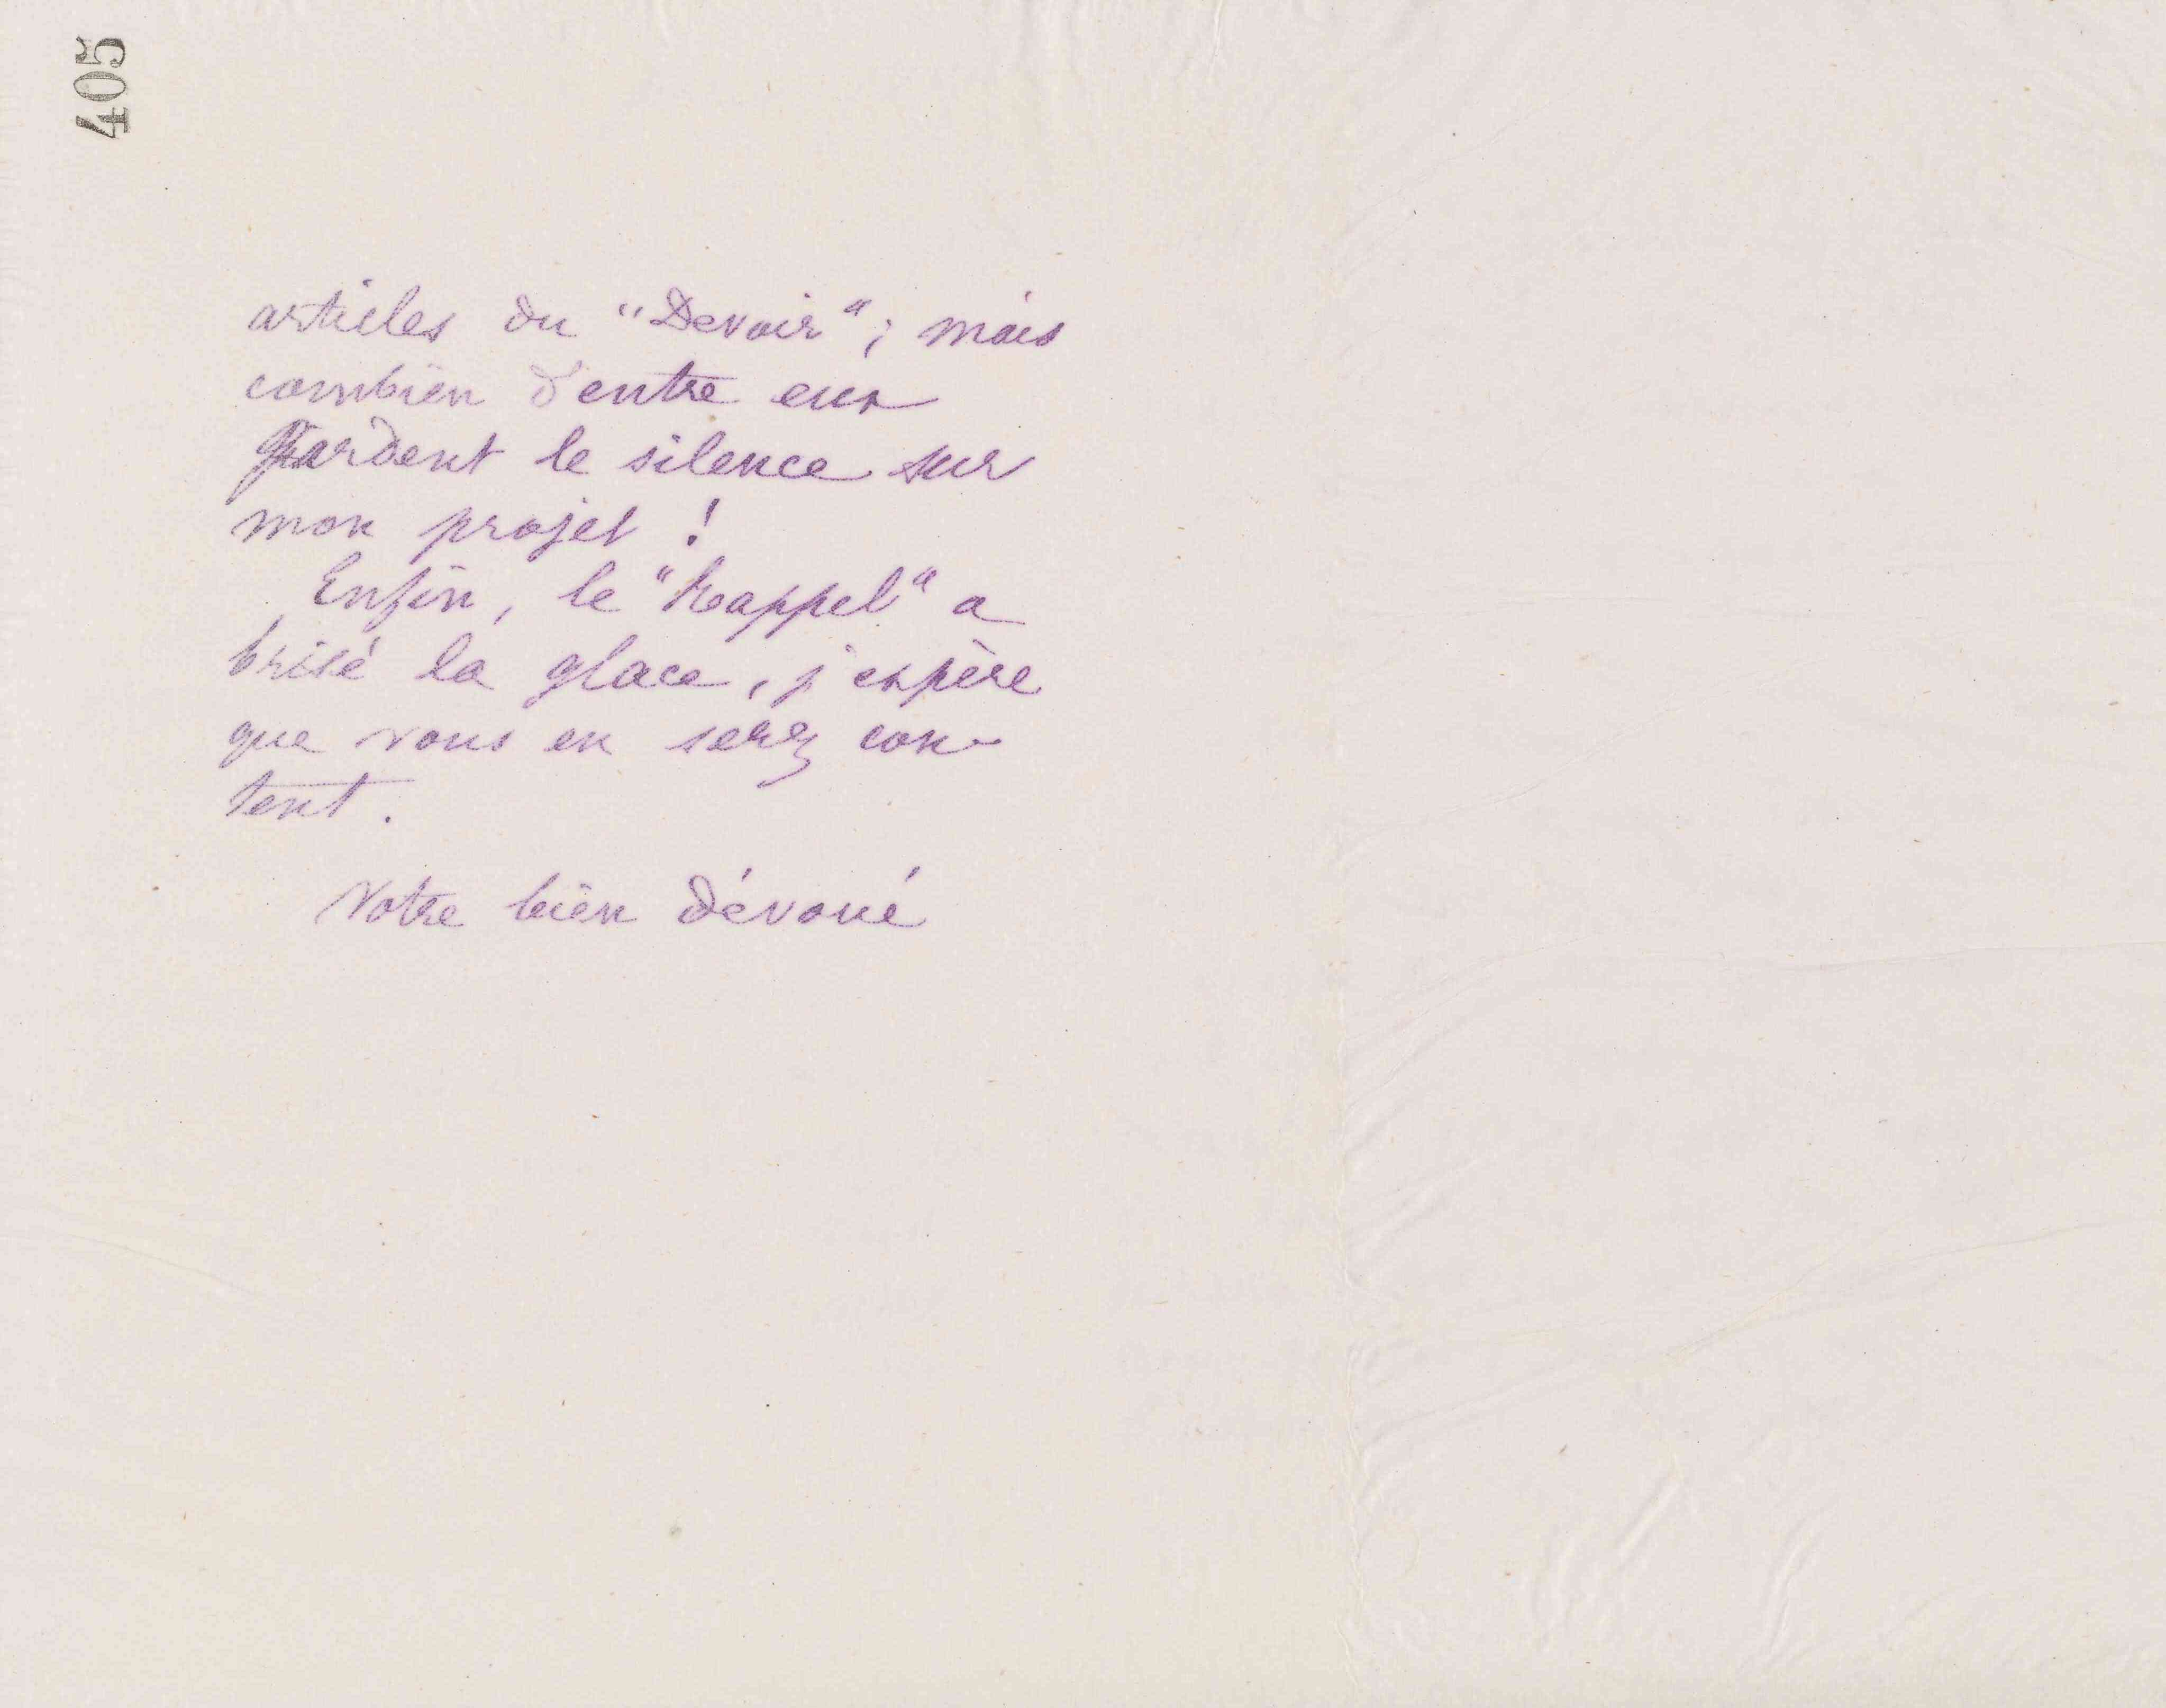 405
articles du "Devoir"; mais
combien d'entre eux
gardent le silence sur
mon projet !
Enfin, le "Rappel" a
brisé la glace, j'espère
que vous en serez con-
tent.
Votre bien dévoué